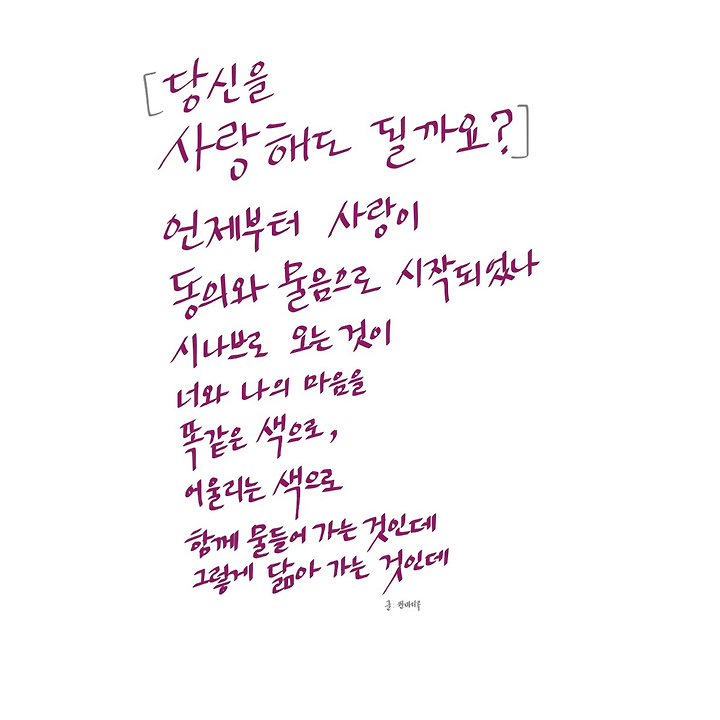 [당신을
사랑해도 될까요?]
언제부터 사랑이
동의와 물음으로 시작되었나
시나브로 오는 것이
너와 나의 마음을
똑같은 색으로,
어울리는 색으로
함께 물들어 가는 것인데
그렇게 닮아 가는 것인데
글: